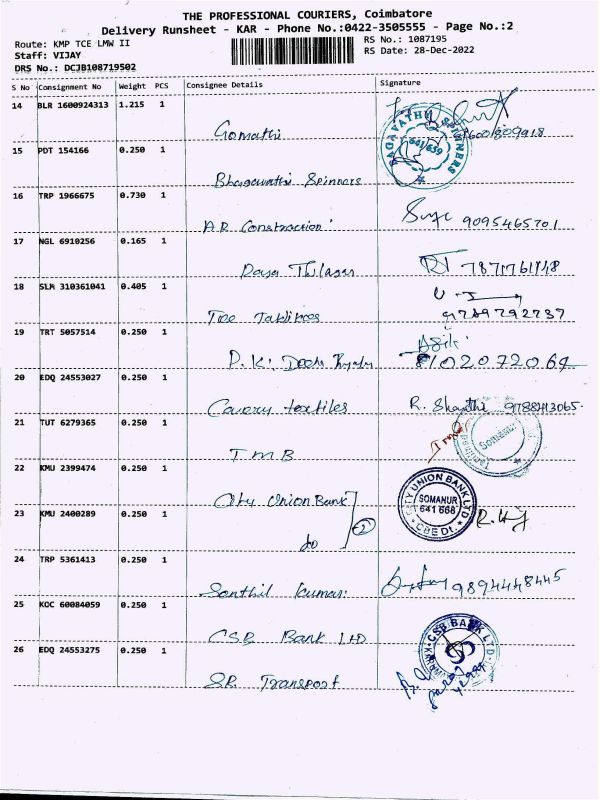 THE PROFESSIONAL COURIERS, Coimbatore
Delivery Runsheet - KAR - Phone No.:0422-3505555 - Page No.:2
Route: KMP TCE LMW II
RS No.: 1087195
Staff: VIJAY
RS Date: 28-Dec-2022
DRS No.: DCJB108719502
S No Consignment No Weight PCS Consignee Details Signature
14 BLR 1600924313 1.215 1
Gomathi
BAGAVATHI SPINNERS
641659
15 PDT 154166 0.250 1
Bhagawathi Spinners
16 TRP 1966675 0.730 1
A.R. Construction 9095465701
17 NGL 6910256 0.165 1
18 SLM 310361041 0.405 1
9789792737
19 TRT 5057514 0.250 1
P.K.
8102072064
20 EDQ 24553027 0.250 1
Cavery textiles R. Shanthi 9788413065.
21 TUT 6279365 0.250 1
T M B
Somanur
22 KMU 2399474 0.250 1
City Union Bank
CITY UNION BANK LTD
SOMANUR
641 668
23 KMU 2400289 0.250 1
do 2
24 TRP 5361413 0.250 1
Senthil Kumar. 9894448445
25 KOC 60084059 0.250 1
CSB Bank LTD
CSB BANK LTD
26 EDQ 24553275 0.250 1
SR Transport